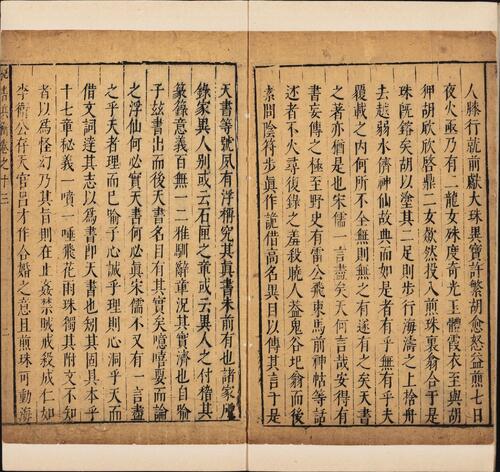 人膝行就前獻大珠異寶許繁胡愈怒益煎七日
夜火亟乃有二龍女殊度奇光玉體霞衣至與胡
狎胡欣欣啓鼎二女歘然投入煎珠裏翕合于是
珠旣鎔矣胡以塗其二足則步行海濤之上捨舟
去越弱水儕神仙故典而如是者有乎無有乎夫
覆載之内何所不全無則無之有遂有之矣天書
之著亦猶是也宋儒一言盡矣天何言哉安得有
書妄傳之極至野史有雷公飛東馬前神帖等話
述者不火尋復錄之羞殺曉人益鬼谷圯翁而後
素問陰符步眞作詭借高名異日以傳其言于是
天書等號夙有浮稱究其眞書未前有也諸家所
錄家異人别或云石匣之藏或云異人之付稽其
篆籙意義百無一二雅馴辭章况其實濟也自騐
子玆書出而後天書名目有其實矣噫嘻要而論
之浮仙何必實天書何必眞宋儒不又有一言盡
之乎天者理而已騐子心誠乎理則心洞乎天而
借文詞達其志以爲書即天書也矧其固具本乎
十七章秘義一噴一唾飛花雨珠獨其附文不知
者以爲怪幻乃其旨則在止姦禁賊戒殺成仁如
李衛公存官呂才作合婚之意且煎珠可動海
兵衡卷之十三
二